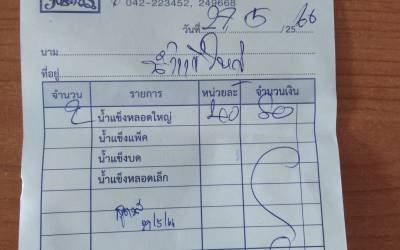 ✆ 042-223452, 249668
วันที่ 27/5/2566
นาม น้ำแข็งใหญ่
ที่อยู่
จำนวน รายการ หน่วยละ จำนวนเงิน
2 น้ำแข็งหลอดใหญ่ 40 80
น้ำแข็งแพ็ค
น้ำแข็งบด
น้ำแข็งหลอดเล็ก
27/5/66